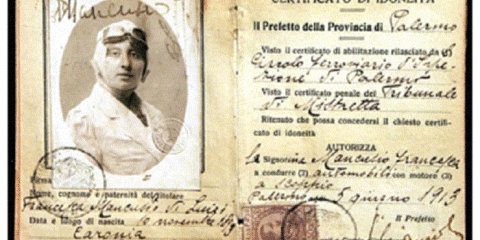 Mancuso
Firma
Nome, cognome e paternità del titolare
Francesca Mancuso di Luigi
Data e luogo di nascita 10 novembre
Caronia
CERTIFICATO DI IDONEITÀ
Il Prefetto della Provincia di Palermo
Visto il certificato di abilitazione rilasciato da
Circolo ferroviario d'Ispe-
zione di Palermo
Visto il certificato penale del Tribunale
di Mistretta
Ritenuto che possa concedersi il chiesto certifi-
cato di idoneità
AUTORIZZA
la Signorina Mancuso Francesca
a condurre (2) automobili con motore (3)
a scoppio
Palermo 5 giugno 1913
Il Prefetto